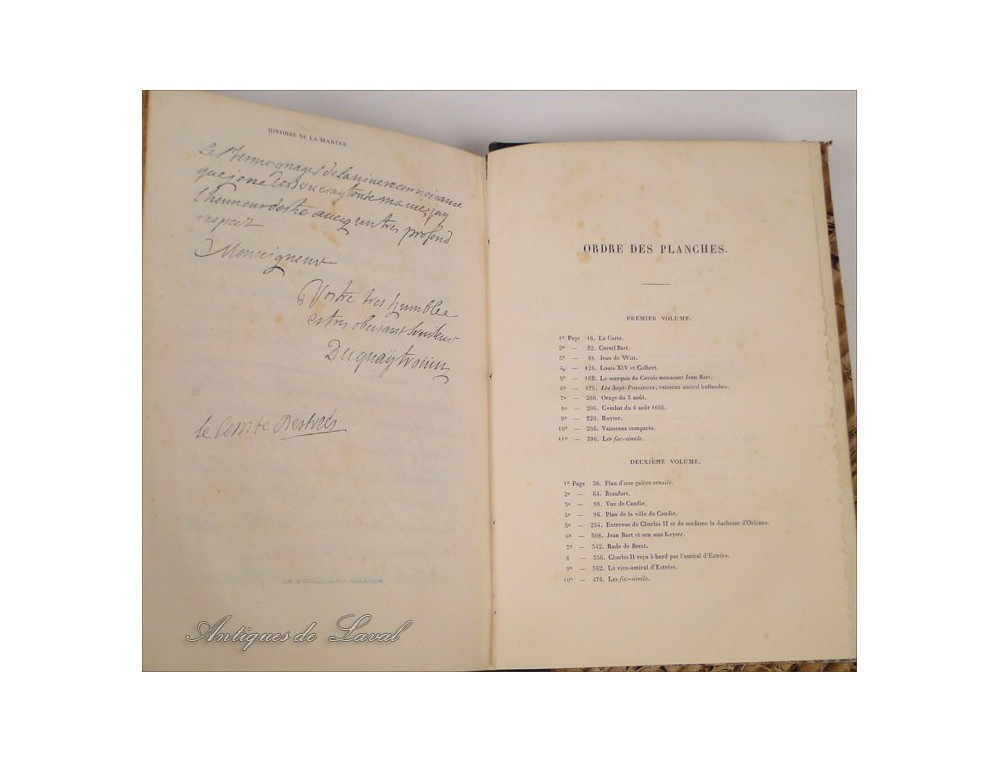 HISTOIRE DE LA MARINE.
Le témoignage de la sincere connoissance
que je ne
l'honneur d'estre avecq un tres profond
respect
Monseigneur
Vostre tres humble
et tres obeissant serviteur
Duguaÿtroüin
le Comte Destrées
Antiques de Laval
ORDRE DES PLANCHES.
PREMIER VOLUME.
1º Page 16. La Carte.
2º — 22. Cornil Bart.
3º — 88. Jean de Witt.
4º — 126. Louis XIV et Colbert.
5º — 162. Le marquis de Cavois menaçant Jean Bart.
6º — 176. Les Sept-Provinces, vaisseau amiral hollandais.
7º — 200. Orage du 5 août.
8º — 206. Combat du 6 août 1666.
9º — 220. Ruyter.
10º — 256. Vaisseaux comparés.
11º — 396. Les fac-simile.
DEUXIÈME VOLUME.
1º Page 36. Plan d'une galère sensile.
2º — 64. Beaufort.
3º — 88. Vue de Candie.
4º — 96. Plan de la ville de Candie.
5º — 254. Entrevue de Charles II et de madame la duchesse d'Orléans.
6º — 308. Jean Bart et son ami Keyser.
7º — 342. Rade de Brest.
8 — 356. Charles II reçu à bord par l'amiral d'Estrées.
9º — 382. Le vice-amiral d'Estrées.
10º — 476. Les fac-simile.